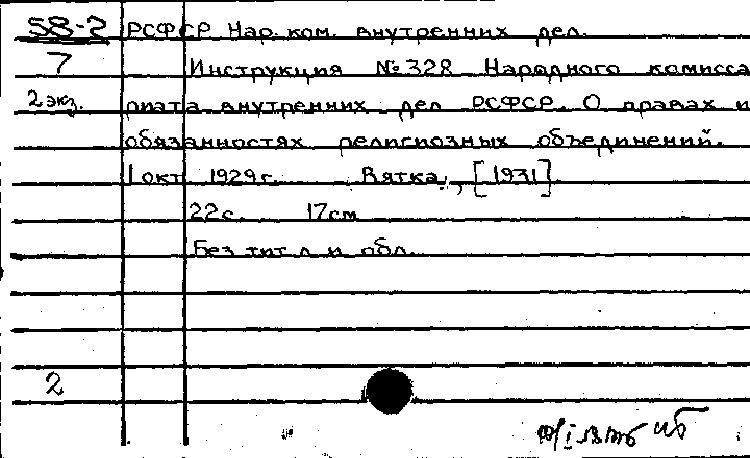 58-2 РСФСР Нар. ком. внутренних дел.
7 Инструкция №328 Народного комисса
2 экз. риата внутренних дел РСФСР. О правах и
обязанностях религиозных объединений.
1 окт 1929г. Вятка, [1931]
22с. 17см
Без тит л и обл.
2